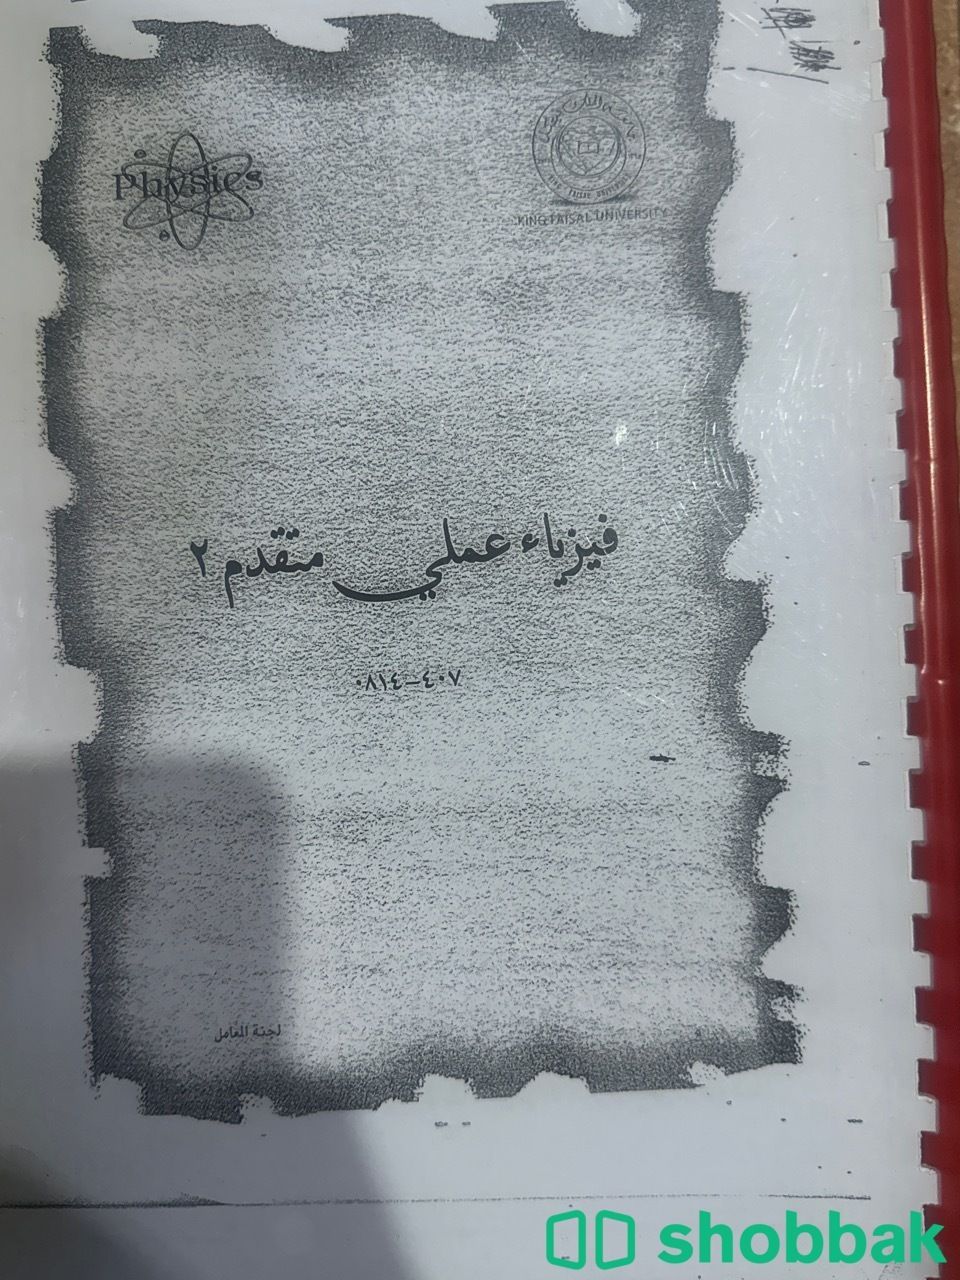 Physics
KING FAISAL UNIVERSITY
فيزياء عملي متقدم ٢
٠٨١٤-٤٠٧
لجنة المعامل
shobbak